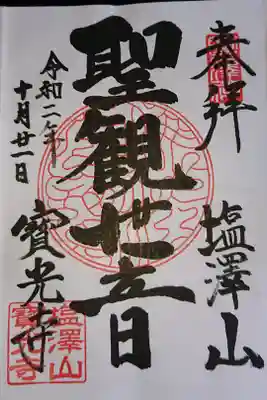 奉拝
塩澤山
聖観世音
寶光寺
令和二年
十月廿一日
塩澤山
寶光寺